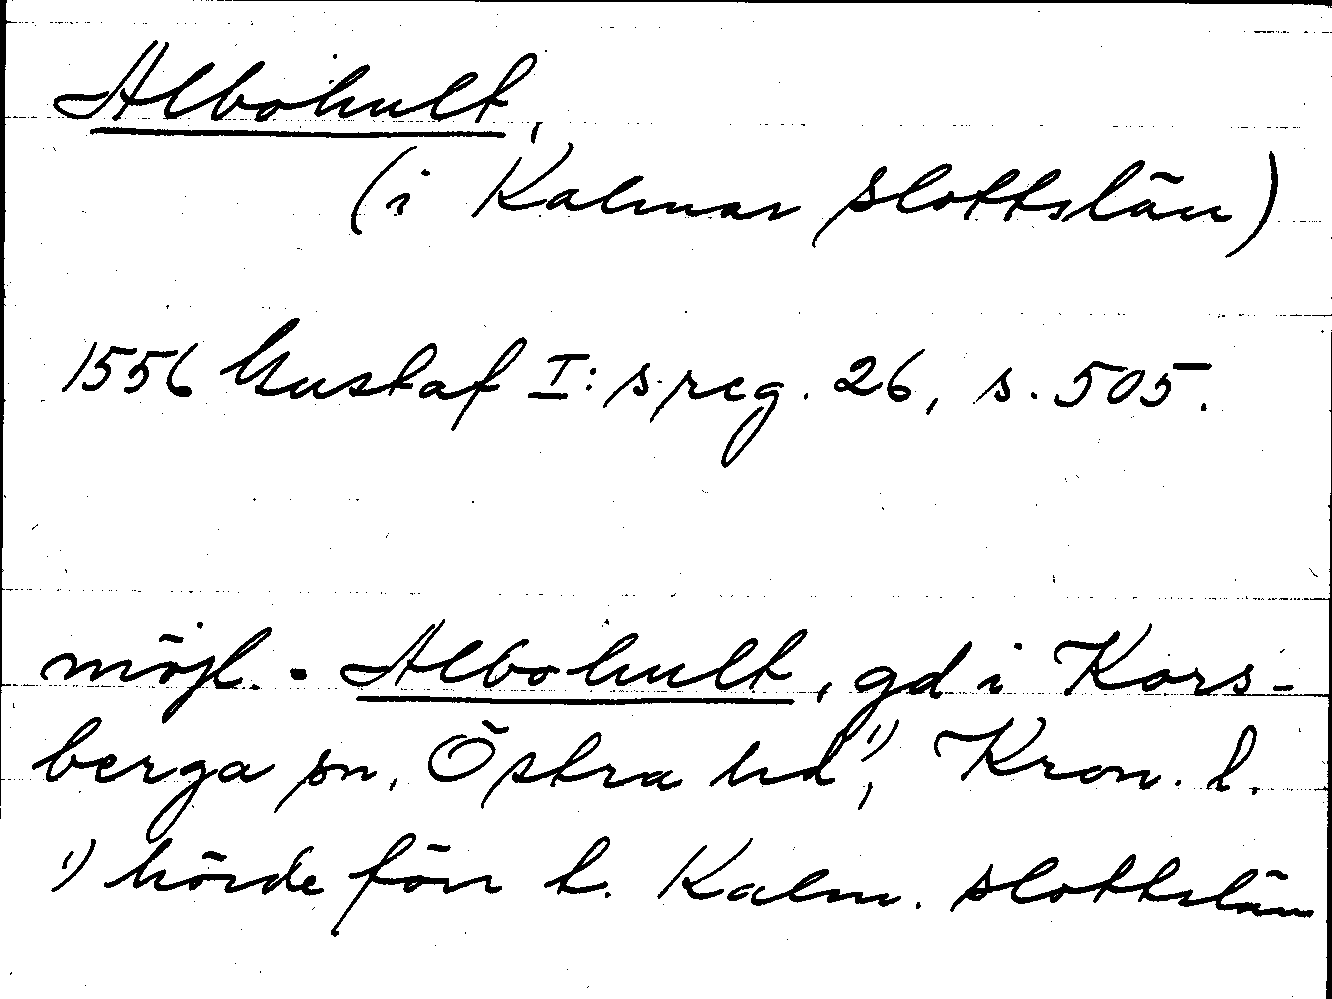 Albohult,
(i Kalmar slottslän)
1556 Gustaf I:s reg. 26, s. 505.
möjl. = Albohult, gd i Kors-
berga sn, Östra hd¹), Kron. l.
¹) hörde förr t. Kalm. slottslän